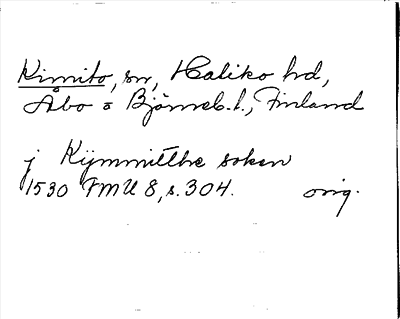 Kimito, sn, Haliko hd,
Åbo o Björneb. l., Finland
j Kymmitthe soken
1530 FMU 8, s. 304. orig.